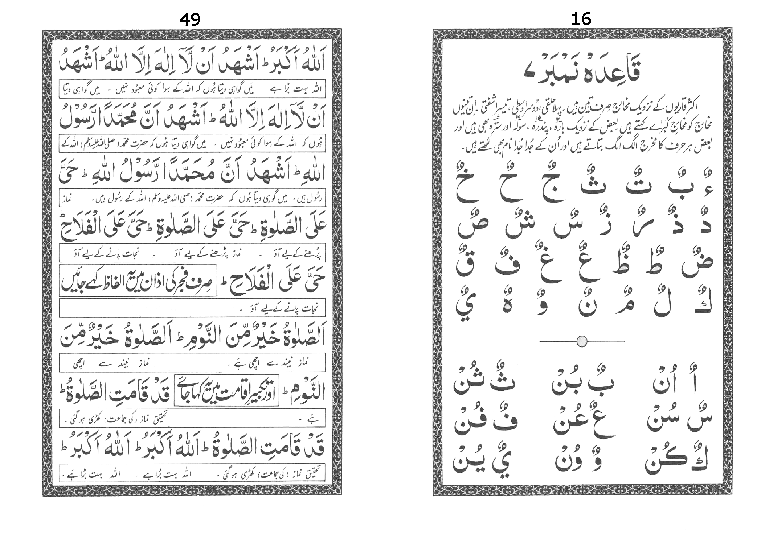 16
قاعدہ نمبر ۷
اکثر قاریوں کے نزدیک مخارج صرف تین ہیں، پہلا حلقی، دوسرا وسطی، تیسرا شفتی۔ ان تینوں
مخارج کو مخارج کبرٰی کہتے ہیں بعض کے نزدیک بارہ، پندرہ، سولہ اور سترہ بھی ہیں اور
بعض ہر حرف کا مخرج الگ الگ بتاتے ہیں اور اُن کے جُدا جُدا نام بھی لکھتے ہیں۔
ءٌ بٌ تٌ ثٌ جٌ حٌ خٌ
دٌ ذٌ رٌ زٌ سٌ شٌ صٌ
ضٌ طٌ ظٌ عٌ غٌ فٌ قٌ
كٌ لٌ مٌ نٌ وٌ ہٌ يٌ
اٌ اُنْ بٌ بُنْ ثٌ ثُنْ
سٌ سُنْ عٌ عُنْ فٌ فُنْ
كٌ كُنْ وٌ وُنْ يٌ يُنْ
49
اَللهُ اَكْبَرُ ط اَشْهَدُ اَنْ لَّآ اِلٰهَ اِلَّا اللهُ ط اَشْهَدُ
اللہ بہت بڑا ہے ۔ میں گواہی دیتا ہوں کہ اللہ کے سوا کوئی معبود نہیں ۔ میں گواہی دیتا
اَنْ لَّآ اِلٰهَ اِلَّا اللهُ ط اَشْهَدُ اَنَّ مُحَمَّدًا رَّسُوْلُ
ہوں کہ اللہ کے سوا کوئی معبود نہیں ۔ میں گواہی دیتا ہوں کہ حضرت محمد صلی اللہ علیہ وسلم اللہ کے
اللهِ ط اَشْهَدُ اَنَّ مُحَمَّدًا رَّسُوْلُ اللهِ ط حَيَّ
رسول ہیں۔ میں گواہی دیتا ہوں کہ حضرت محمد (صلی اللہ علیہ وسلم) اللہ کے رسول ہیں۔ نماز
عَلَى الصَّلٰوةِ ط حَيَّ عَلَى الصَّلٰوةِ ط حَيَّ عَلَى الْفَلَاحِ ط
پڑھنے کے لیے آؤ ۔ نماز پڑھنے کے لیے آؤ ۔ نجات پانے کے لیے آؤ
حَيَّ عَلَى الْفَلَاحِ ط صرف فجر کی اذان میں یہ الفاظ کہے جائیں
نجات پانے کے لیے آؤ ۔
اَلصَّلٰوةُ خَيْرٌ مِّنَ النَّوْمِ ط اَلصَّلٰوةُ خَيْرٌ مِّنَ
نماز نیند سے اچھی ہے نماز نیند سے اچھی
النَّوْمِ ط اور تکبیر اقامت میں یہ کہا جائے قَدْ قَامَتِ الصَّلٰوةُ ط
ہے ۔ تحقیق نماز (کی جماعت) کھڑی ہو گئی ۔
قَدْ قَامَتِ الصَّلٰوةُ ط اَللهُ اَكْبَرُ ط اَللهُ اَكْبَرُ ط
تحقیق نماز (کی جماعت) کھڑی ہو گئی ۔ اللہ بہت بڑا ہے اللہ بہت بڑا ہے ۔